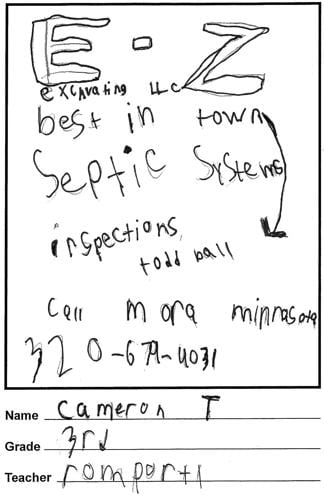 E-Z
excavating LLC
best in town
Septic Systems
inspections
todd ball
Call mora minnasota
320-679-4031
Name Cameron T
Grade 3rd
Teacher romportl